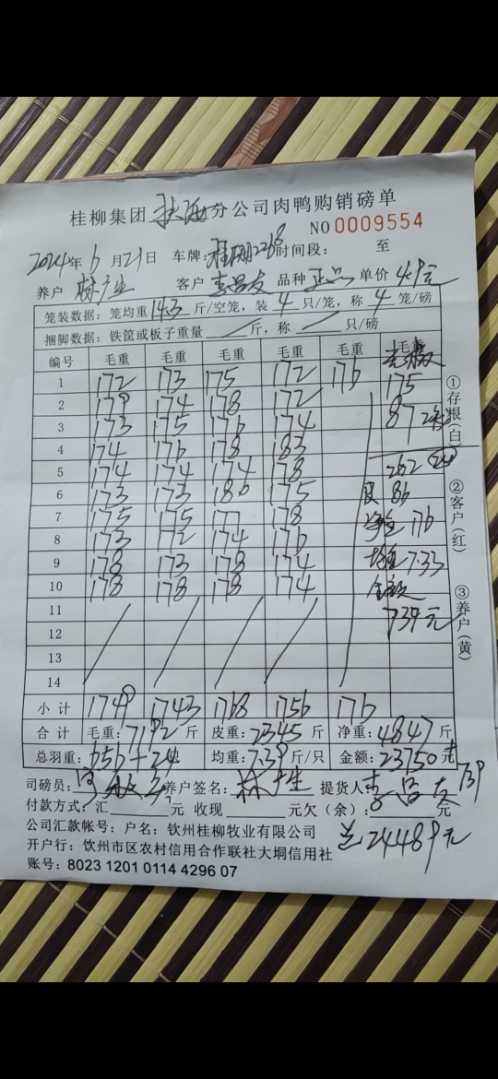 桂柳集团 分公司肉鸭购销磅单
NO 0009554
2024年6月21日 车牌: 时间段: 至
养户 客户 李昌友 品种 正品 单价 4.9元
笼装数据: 笼均重 14.3 斤/空笼, 装 4 只/笼, 称 4 笼/磅
捆脚数据: 铁筐或板子重量 斤, 称 只/磅
编号 毛重 毛重 毛重 毛重 毛重 毛重
1 172 173 175 172 176 175
2 179 174 178 172 87
3 173 175 176 174
4 174 176 178 183 262
5 174 174 174 178
6 173 173 180 175 86
7 175 175 177 178 176
8 173 172 174 176 7.33
9 178 173 178 174
10 178 178 178 174 739元
11
12
13
14
小计 1749 1743 1768 1756 176
合计 毛重: 7192 斤 皮重: 2345 斤 净重: 4847 斤
总羽重: 656+24 均重: 7.39 斤/只 金额: 23750 元
739
司磅员: 养户签名: 提货人: 李昌友
付款方式: 汇 元 收现 元欠(余): 元
公司汇款帐号: 户名: 钦州桂柳牧业有限公司
总24489元
开户行: 钦州市区农村信用合作联社大垌信用社
账号: 8023 1201 0114 4296 07
①存根(白)
②客户(红)
③养户(黄)